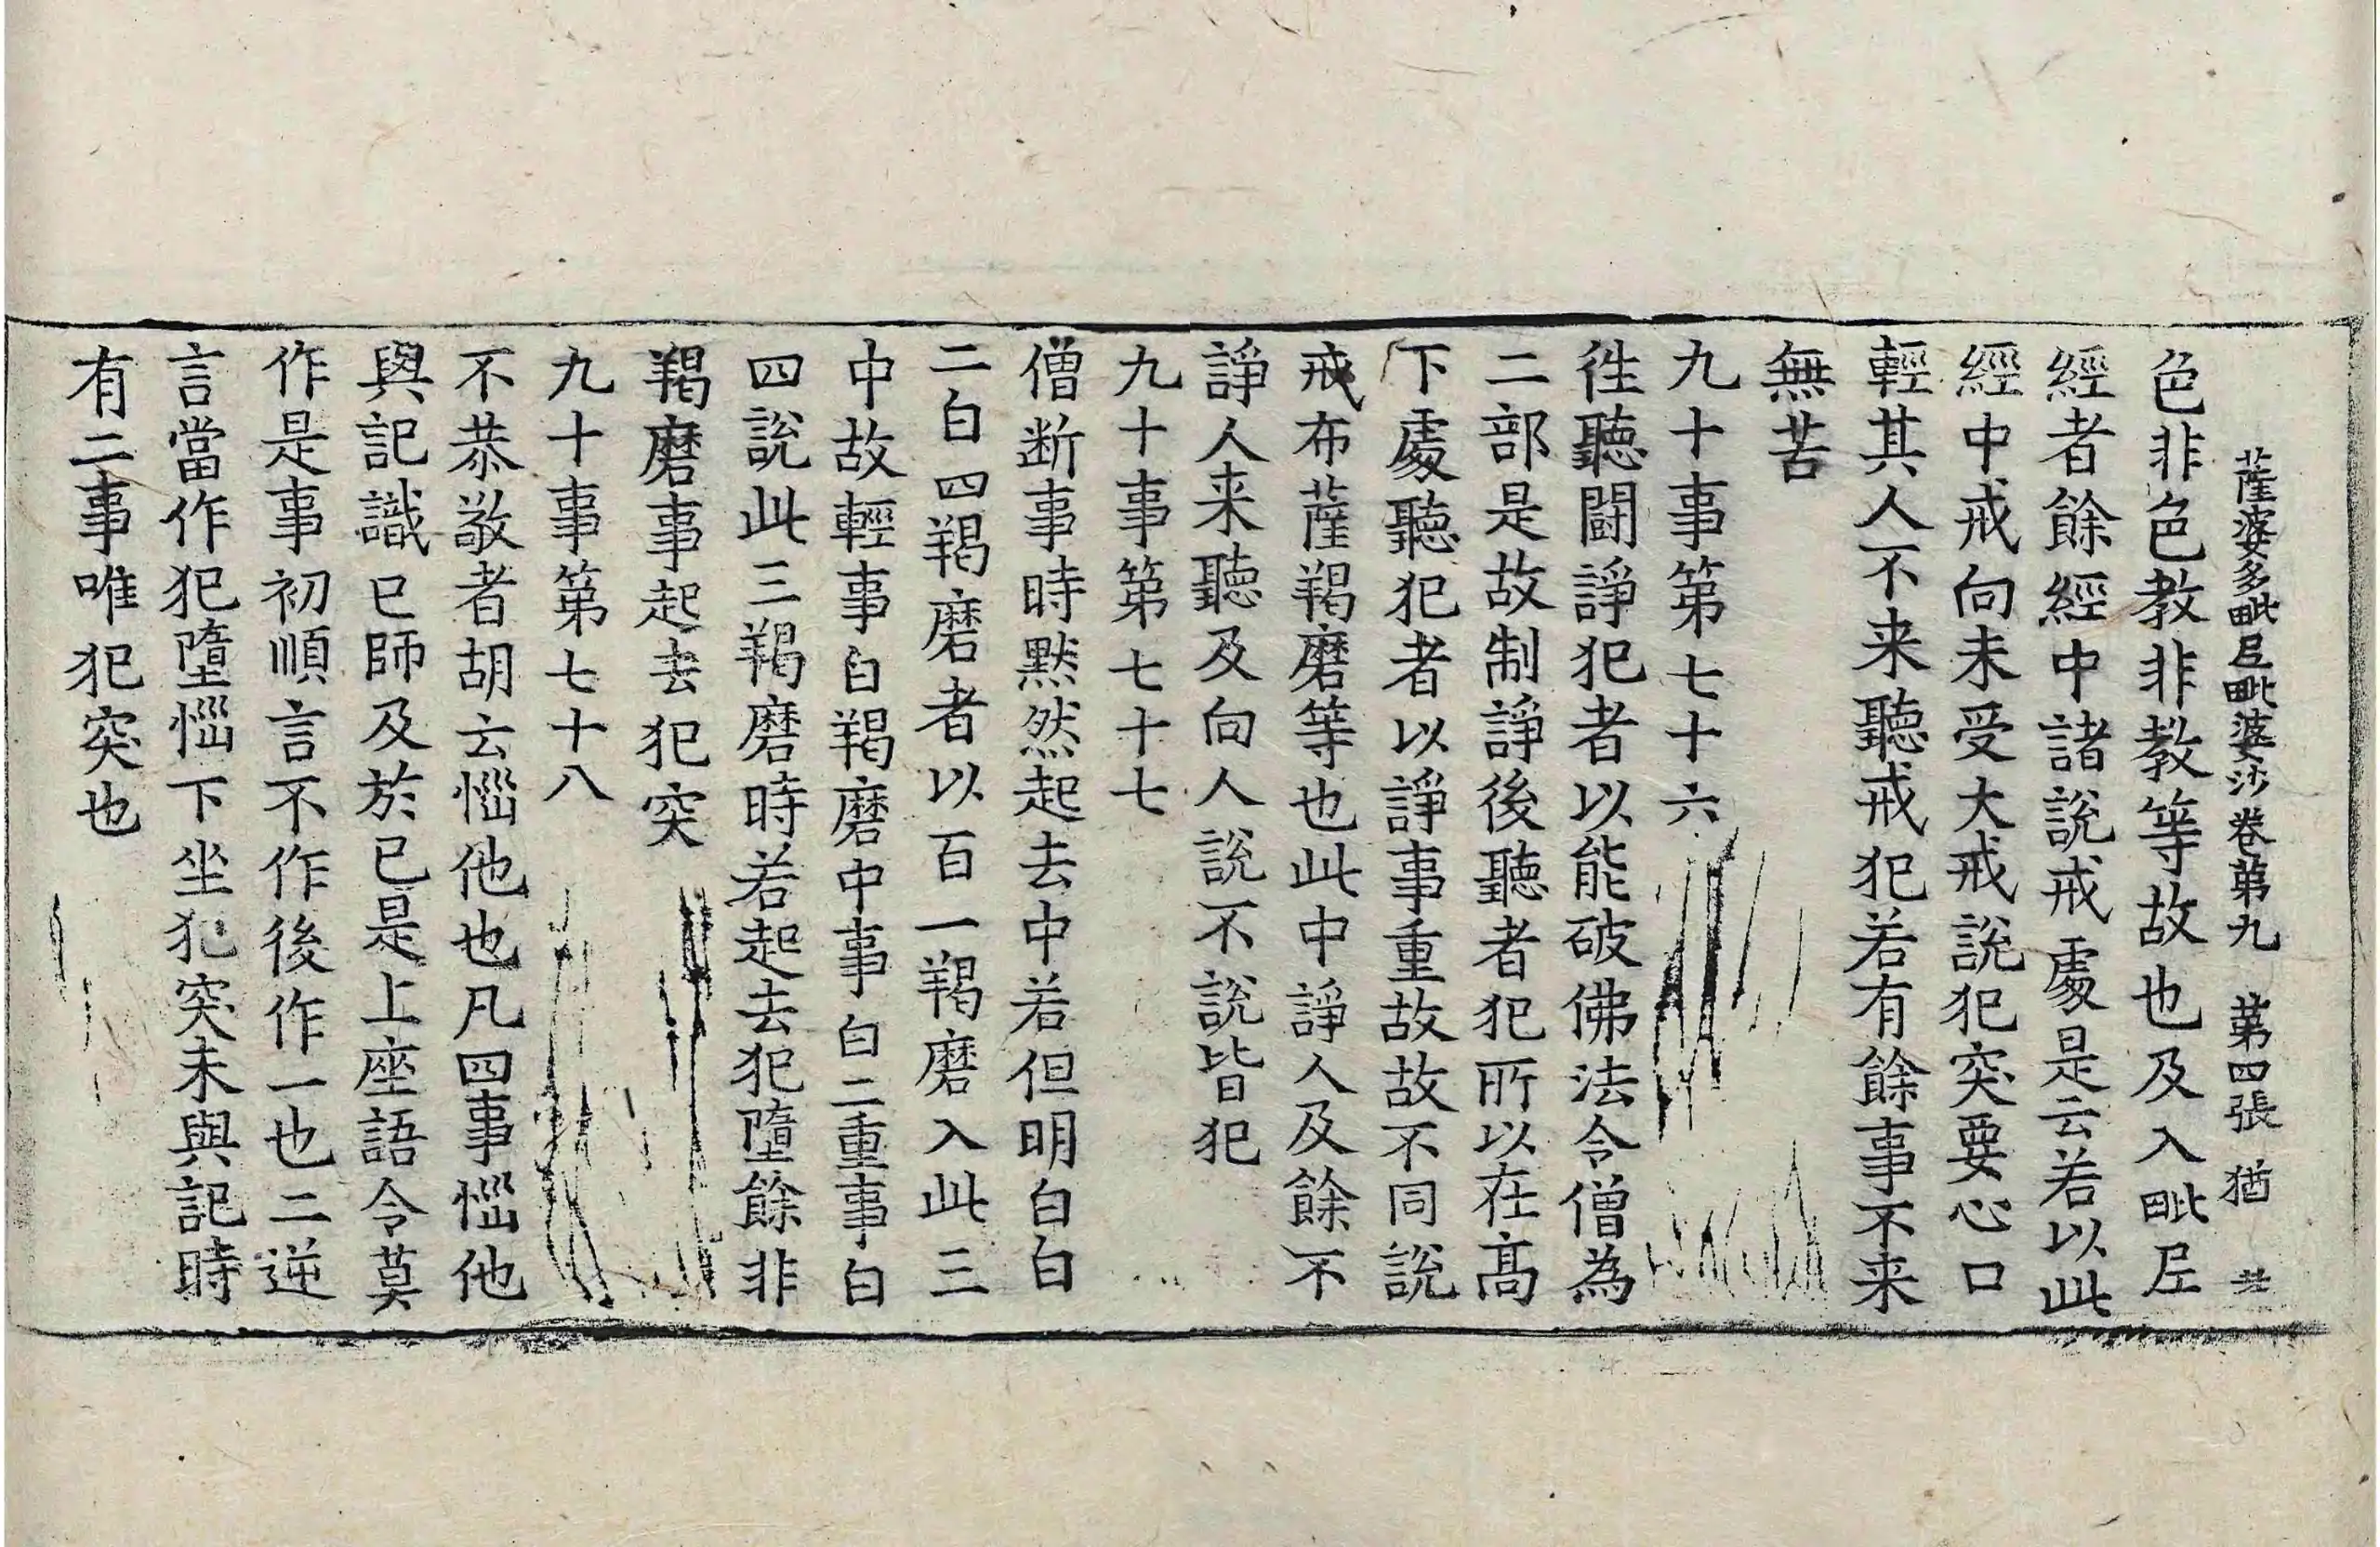 薩婆多毗尼毗婆沙卷第九　第四張　猶
色非色教非教等故也及入毗尼
經者餘經中諸說戒處是云若以此
經中戒向未受大戒說犯突要心口
輕其人不来聽戒犯若有餘事不来
無苦
九十事第七十六
徃聽闘諍犯者以能破佛法令僧為
二部是故制諍後聽者犯所以在髙
下處聽犯者以諍事重故故不同說
戒布薩羯磨等也此中諍人及餘不
諍人来聽及向人說不說皆犯
九十事第七十七
僧断事時黙然起去中若但明白白
二白四羯磨者以百一羯磨入此三
中故輕事白羯磨中事白二重事白
四說此三羯磨時若起去犯墮餘非
羯磨事起去犯突
九十事第七十八
不恭敬者胡云惱他也凡四事惱他
與記識已師及於已是上座語令莫
作是事初順言不作後作一也二逆
言當作犯墮惱下坐犯突未與記時
有二事唯犯突也